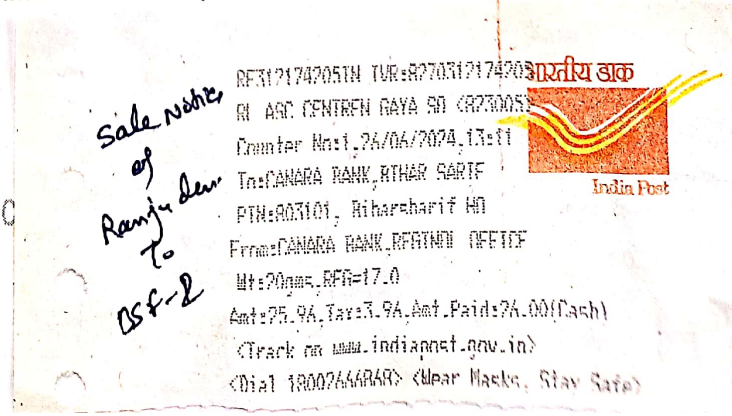 RF312174205IN IVR:8270312174205
RL ASC CENTREN GAYA SO <823005>
Counter No:1,26/06/2024,13:11
To:CANARA BANK,BIHAR SARIF
PIN:803101, Biharsharif HO
From:CANARA BANK,REGINOL OFFICE
Wt:20gms,REG=17.0
Amt:25.96,Tax:3.96,Amt.Paid:26.00(Cash)
<Track on www.indiapost.gov.in>
<Dial 18002666868> <Wear Masks, Stay Safe>
भारतीय डाक
India Post
Sale Notice
of
Ranju devi
To